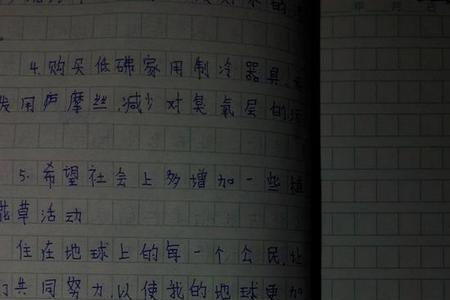 的
年 月 日
4.购买低家用制冷器具,
用摩丝,减少对臭氧层的
5.希望社会上多增加一些植
花草活动
住在地球上的每一个公民,让
们共同努力,以使我的地球更加